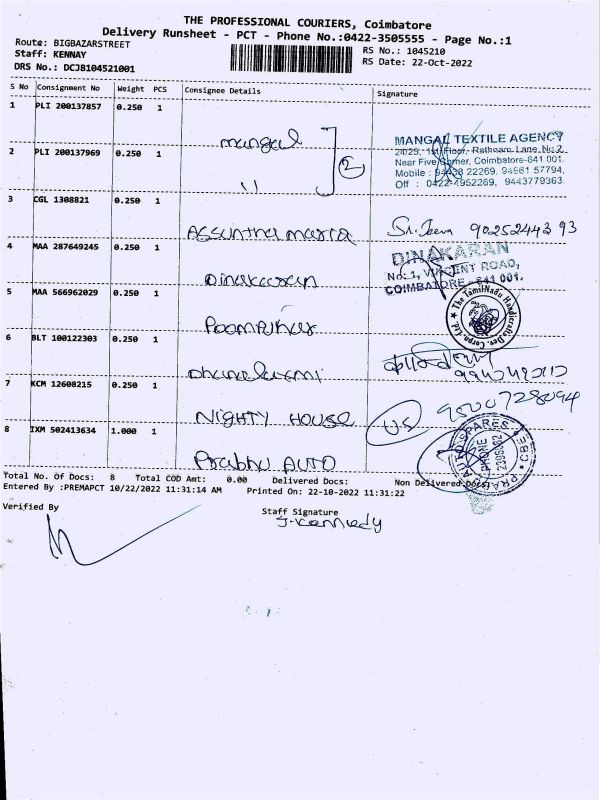 THE PROFESSIONAL COURIERS, Coimbatore
Delivery Runsheet - PCT - Phone No.:0422-3505555 - Page No.:1
Route: BIGBAZARSTREET
Staff: KENNAY
DRS No.: DCJB104521001
RS No.: 1045210
RS Date: 22-Oct-2022
S No Consignment No Weight PCS Consignee Details Signature
1 PLI 200137857 0.250 1 mangal
2 PLI 200137969 0.250 1 " 2
MANGAL TEXTILE AGENCY
24/25, 1st Floor, Rathnam Lane No. 2
Near Five Corner, Coimbatore-641 001.
Mobile : 94438 22269, 94561 57794,
Off : 0422-4952269, 9443779363
3 CGL 1308821 0.250 1 Assuntha maria Sr. Jeen 9025244393
4 MAA 287649245 0.250 1 Dinakaran
DINAKARAN
No. 1, VINCENT ROAD,
COIMBATORE - 641 001.
5 MAA 566962029 0.250 1 Poompuhar
The TamilNadu Handicrafts Dev. Corpn. Ltd.
6 BLT 100122303 0.250 1 Dhanalaxmi
7 KCM 12608215 0.250 1 NIGHTY HOUSE 9500728094
8 IXM 502413634 1.000 1 Prabhu AUTO
AUTO SPARES
PHONE
Total No. Of Docs: 8 Total COD Amt: 0.00 Delivered Docs: Non Delivered Docs:
Entered By :PREMAPCT 10/22/2022 11:31:14 AM Printed On: 22-10-2022 11:31:22
Verified By
Staff Signature
J. Kennedy